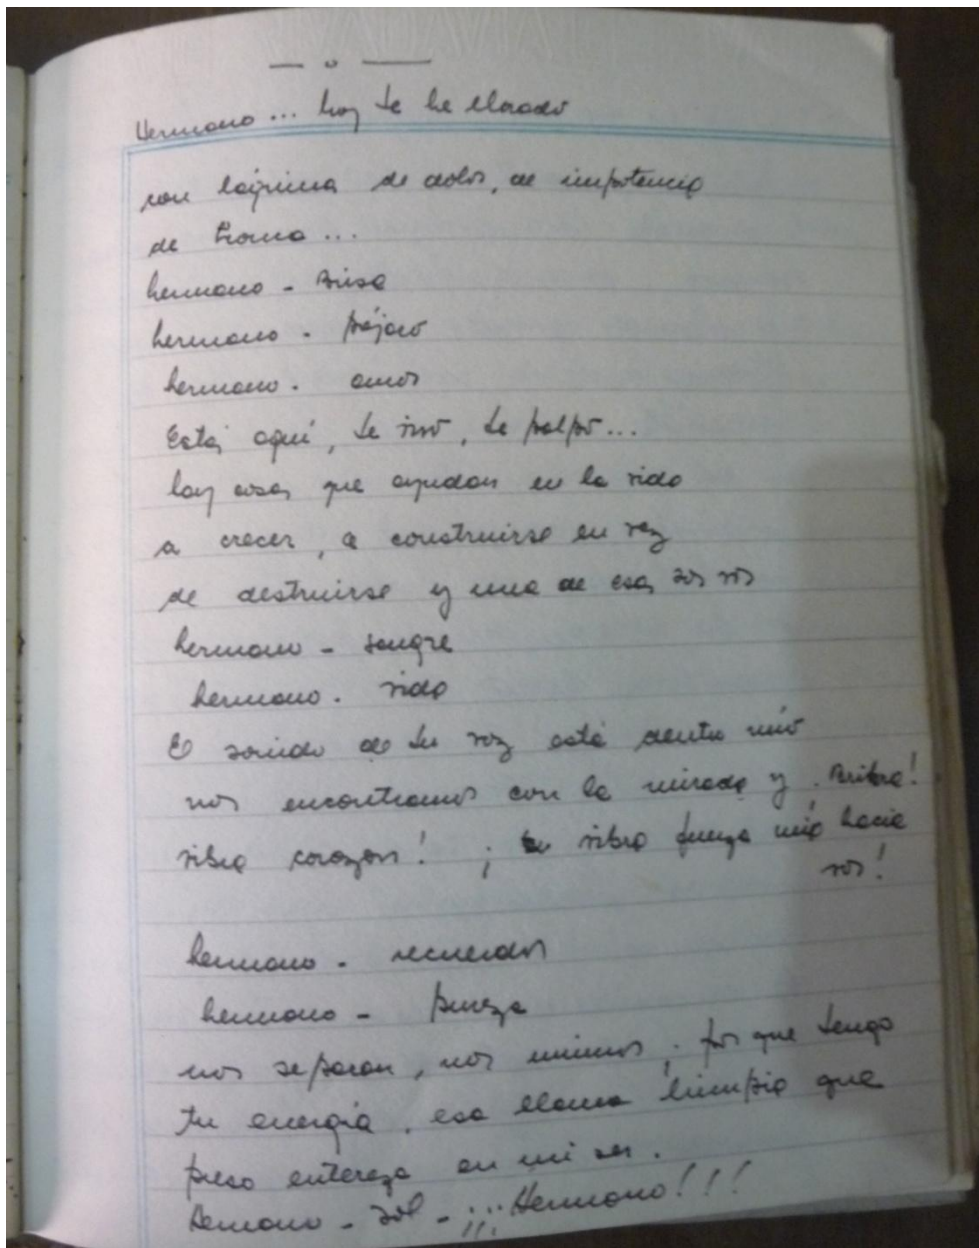 — o —
Hermano... hoy te he llorado
con lágrima de dolor, de impotencia
de
hermano - Brisa
hermano - pájaro
hermano - amor
Está aquí, te vivo, te palpo...
hay cosas que ayudan en la vida
a crecer, a construirse en vez
de destruirse y una de esas sos vos
hermano - sangre
hermano - vida
El sonido de tu voz está dentro mío
nos encontramos con la mirada y . Vibra!
vibra corazon! ¡ vibra fuerza mía hacia
vos!
hermano - recuerdos
hermano - pureza
nos separan, nos unimos, por que tengo
tu energía, esa llama limpia que
puso entereza en mi ser.
Hermano - sol - ¡¡¡Hermano!!!